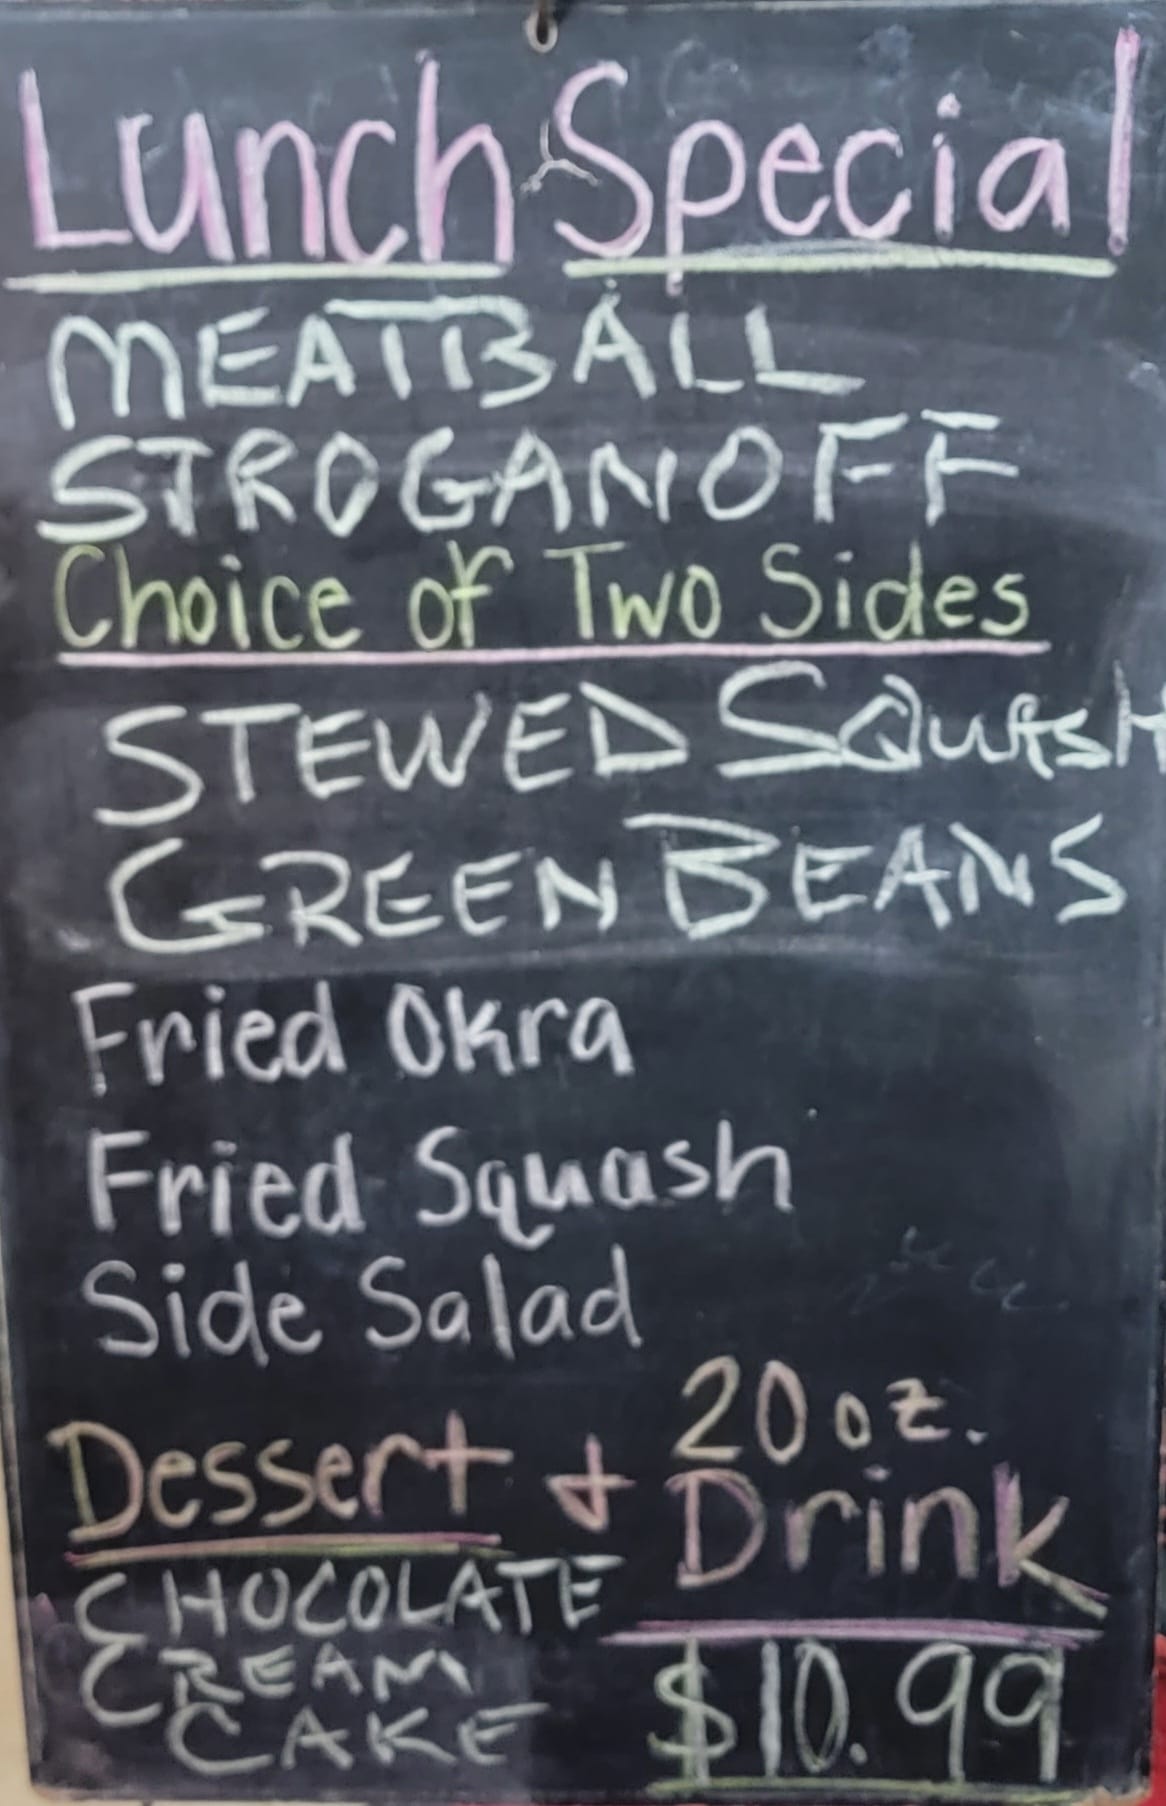 Lunch Special
MEATBALL
STROGANOFF
Choice of Two Sides
STEWED SQUASH
GREEN BEANS
Fried Okra
Fried Squash
Side Salad
Dessert +
20 oz.
Drink
CHOCOLATE
CREAM
CAKE
$10.99